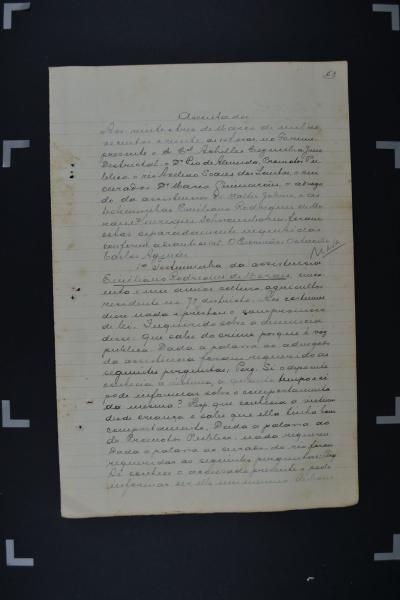 Assentada
Aos vinte e tres de Março de mil no-
vecentos e vinte, as horas, no Forum,
presente o Cel. Achilles Juiz
Districtal, o Dr. Pio de Almeida, Promotor Pu-
blico, o réo Avelino Soares dos Santos, o seu
curador, Dr. Mario Guimarães, o advoga-
do da assistencia Dr. e as
testemunhas Emiliano Rodrigues de Mo-
raes, foram
estas separadamente inqueridas
conforme adiante se vê. O Escrivão
Carlos
1ª Testemunha da assistencia
Emiliano Rodrigues de Moraes, cinco-
enta e um annos, solteiro, agricultor,
residente no 7º districto. Aos costumes
disse nada e prestou o compromisso
de lei. Inquirido sobre a denuncia
disse: Que sabe do crime porque é voz
publica. Dada a palavra ao advogado
da assistencia foram requeridas as
seguintes perguntas: Perg. Si o depoente
conhecia a victima, a quanto tempo, e si
pode informar sobre o comportamento
da mesma? Resp. que conhecia a victima
desde creança e sabe que ella tinha bom
comportamento. Dada a palavra ao
Dr. Promotor Publico nada requereu.
Dada a palavra ao curador do réo foram
requeridas as seguintes perguntas: Perg.
Si conhece o accusado presente e pode
informar ser elle